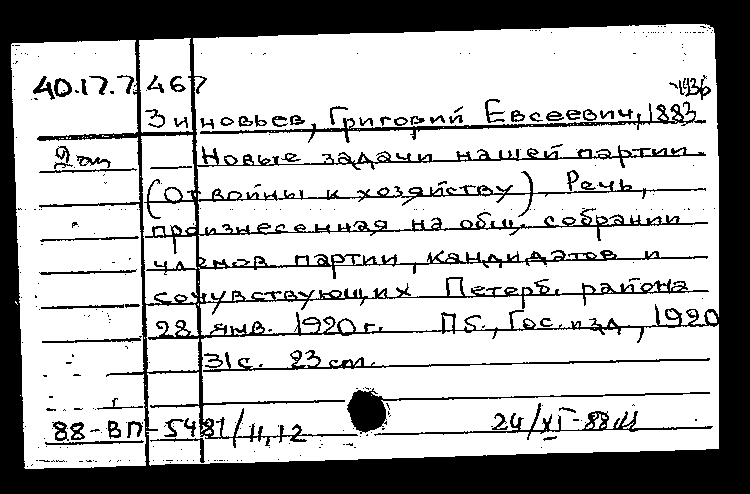 40.17.7.467
-1936
Зиновьев, Григорий Евсеевич, 1883
Новые задачи нашей партии.
(От войны к хозяйству). Речь,
произнесенная на общ. собрании
членов партии, кандидатов и
сочувствующих Петерб. района
28 янв. 1920 г. Пб., Гос. изд, 1920
31 с. 23 см.
88-ВП-5481/11,12
24/XI-88